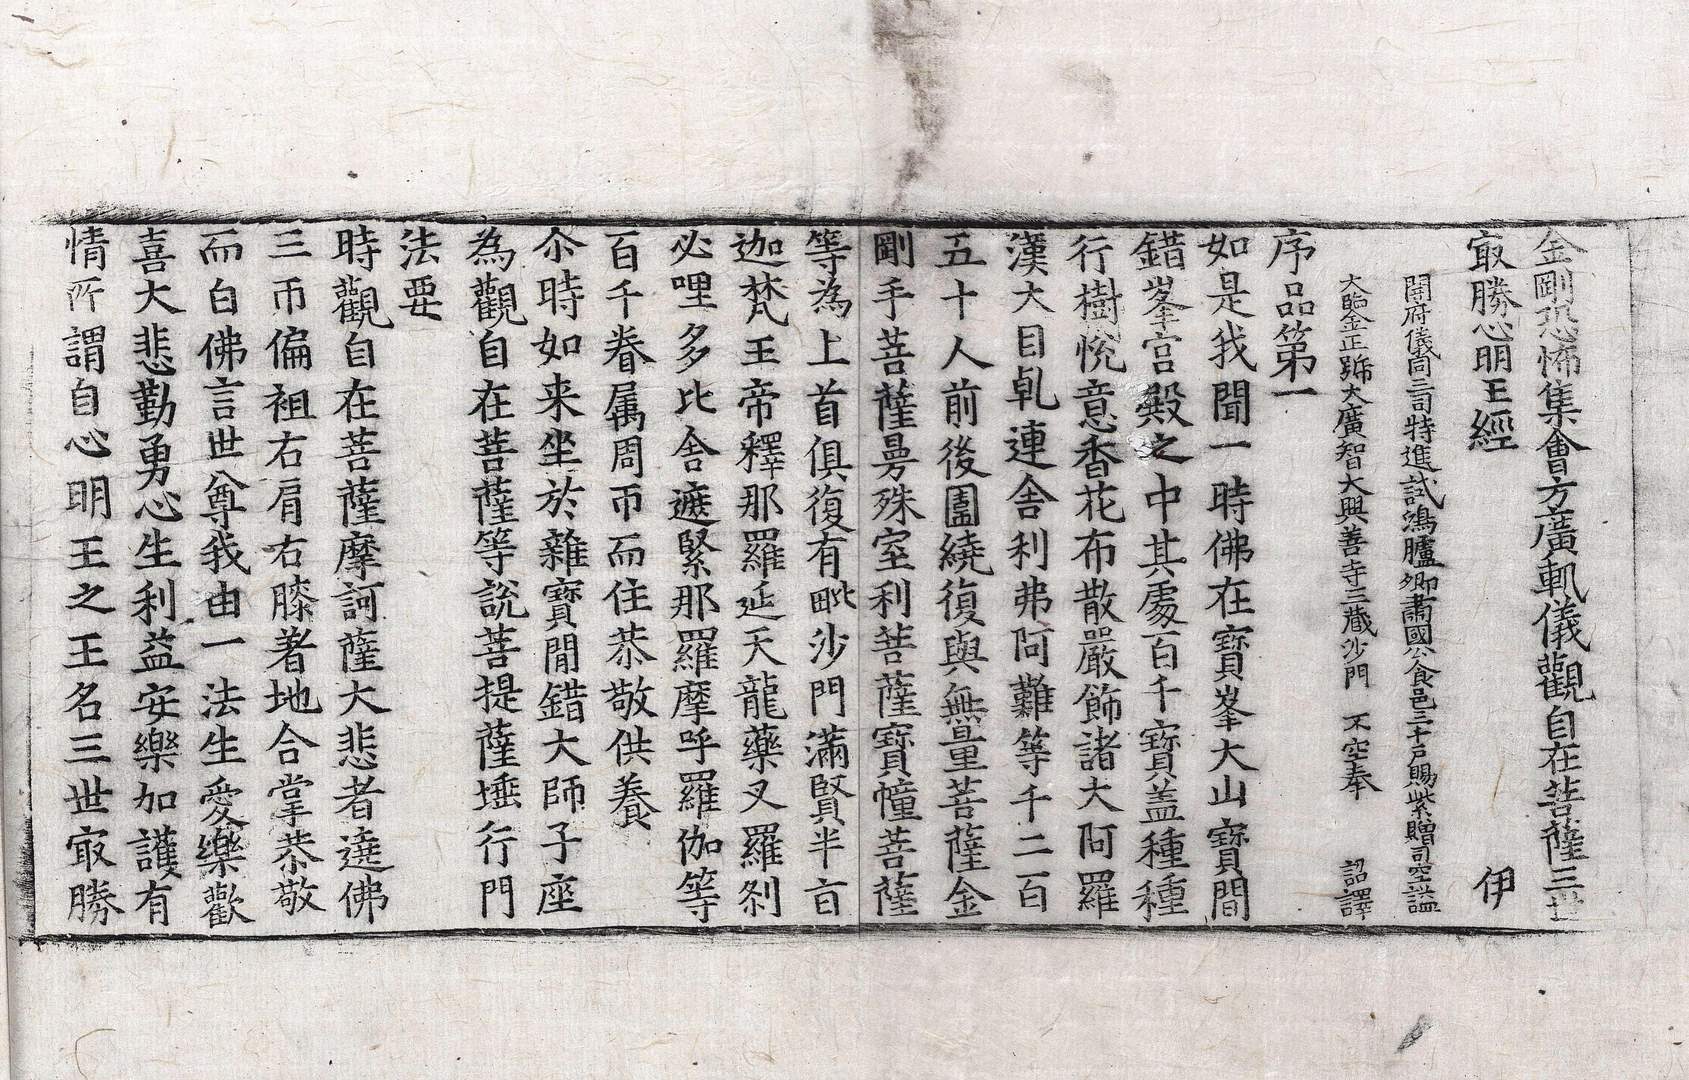 金剛恐怖集會方廣軌儀觀自在菩薩三世
㝡勝心明王經 伊
開府儀同三司特進試鴻臚卿肅國公食邑三千戶賜紫贈司空謚
大臨金正號大廣智大興善寺三藏沙門 不空奉 詔譯
序品第一
如是我聞一時佛在寶峯大山寶間
錯峯宮殿之中其處百千寶盖種種
行樹悅意香花布散嚴飾諸大阿羅
漢大目乹連舍利弗阿難等千二百
五十人前後圍繞復與無量菩薩金
剛手菩薩曼殊室利菩薩寶幢菩薩
等為上首俱復有毗沙門滿賢半𭅺
迦梵王帝釋那羅延天龍藥叉羅剎
必哩多比舍遮緊那羅摩呼羅伽等
百千眷属周帀而住恭敬供養
尒時如来坐於雜寶間錯大師子座
為觀自在菩薩等說菩提薩埵行門
法要
時觀自在菩薩摩訶薩大悲者遶佛
三帀偏袒右肩右膝著地合掌恭敬
而白佛言世尊我由一法生愛樂歡
喜大悲勤勇心生利益安樂加護有
情所謂自心明王之王名三世㝡勝